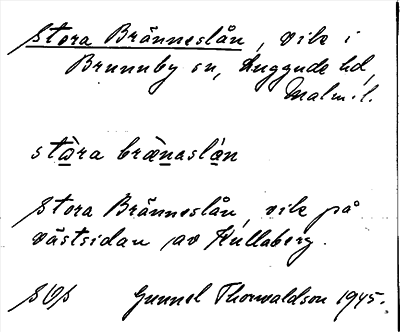 Stora Bränneslån, vik i
Brunnby sn, Luggude hd,
Malm. l.
stàra brànaslàn
Stora Bränneslån, vik på
västsidan av Kullaberg.
SOS Gunnel Thorvaldson 1945.